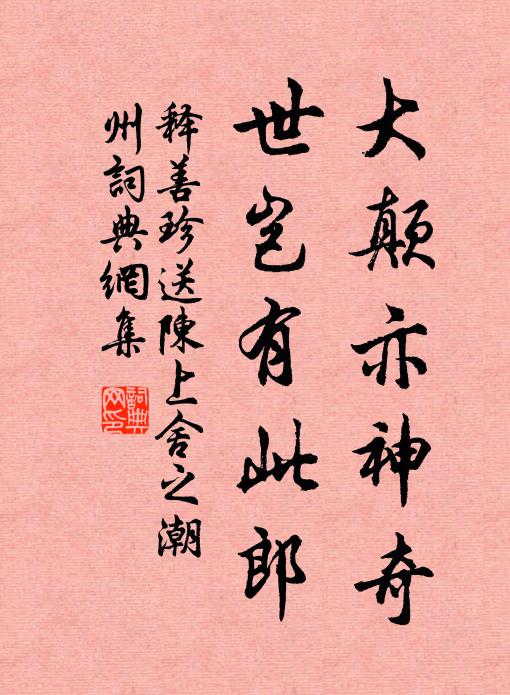 大顛亦神奇
世岂有此郎
释善珍送陳上舍之潮
州詞典網集
詞典
网印